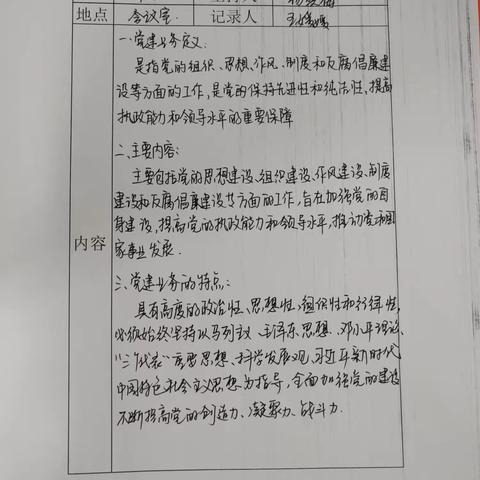 地点 会议室 记录人
一.党建业务定义.
是指党的组织、思想、作风、制度和反腐倡廉建
设等方面的工作,是党的保持先进性和纯洁性,提高
执政能力和领导水平的重要保障
二.主要内容:
主要包括党的思想建设、组织建设、作风建设、制度
建设和反腐倡廉建设等方面的工作,旨在加强党的自
身建设,提高党的执政能力和领导水平,推动党和国
家事业发展.
内容
三.党建业务的特点:
具有高度的政治性、思想性、组织性和纪律性,
必须始终坚持以马列主义、毛泽东思想、邓小平理论、
“三个代表”重要思想、科学发展观、习近平新时代
中国特色社会主义思想为指导,全面加强党的建设
不断提高党的创造力、凝聚力、战斗力.